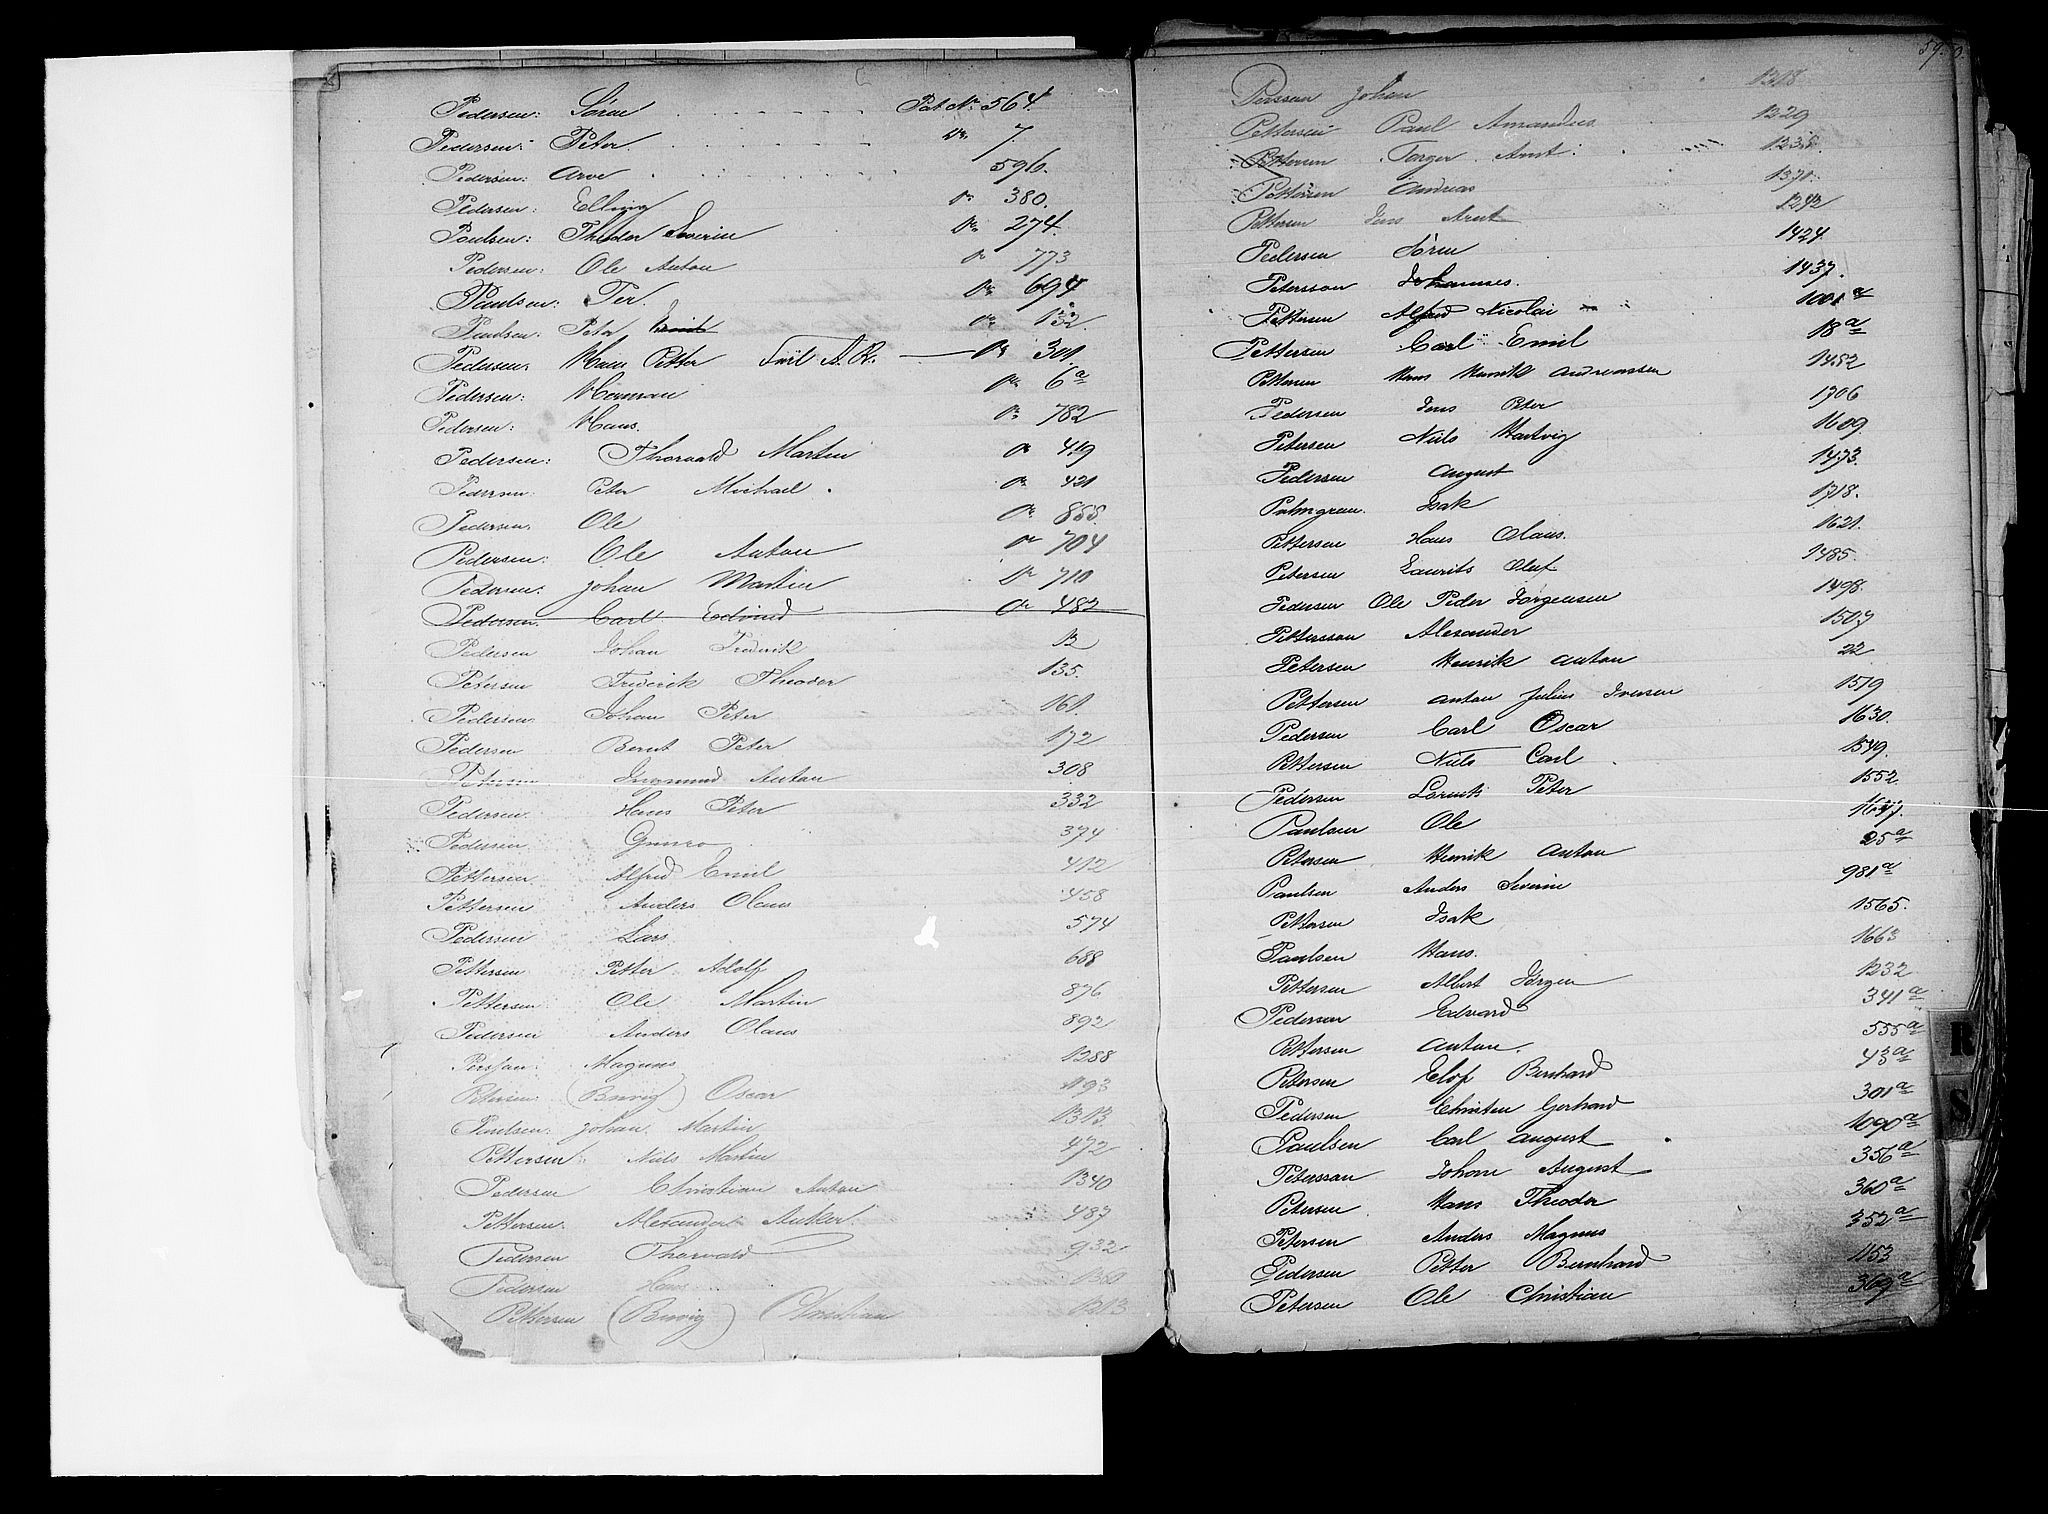 Pedersen: Søren Pat. No 564.
Pedersen: Peter. Do 7.
Pedersen: Arve 596.
Pedersen: Elling Do 380.
Poulsen: Theodor Severin Do 274.
Pedersen: Ole Anton Do 773
Paulsen: Ter. Do 694
Paulsen: Peter Do 132
Pedersen: Hans Petter A. R. Do 301.
Pedersen: Herman Do 6a
Pedersen: Hans. Do 782
Pedersen: Thorvald Martin Do 419
Pedersen: Peter Michael. Do 421
Pedersen. Ole Do 855.
Pedersen: Ole Anton Do 704
Pedersen: Johan Martin Do 710
Pedersen. Carl Edvind Do 482
Pedersen Johan Frederik 12
Petersen Frederik Theodor 135.
Pedersen Johan Peter 161.
Pedersen Bernt Peter 172
Petersen Ingmund Anton 308
Pedersen Hans Peter 332
Pedersen 374
Pettersen Alfred Emil 412
Pettersen Anders Olaus 458
Pedersen Lars 574
Pettersen Petter Adolf 688
Pettersen Ole Martin 876
Pedersen Anders Olaus 892
Persson: Magnus 1288
Petersen: (Buvig) Oscar 1193
Paulsen: Johan Martin 1313
Pettersen: Niels Martin 472
Pedersen Christian Anton 1340
Pettersen: Alexander Anker. 487
Pedersen Thorvald 932
Pedersen Hans 1360
Pettersen (Buvig) Christian 1213
Persson Johan 1318
Pettersen Paul Amandus 1229
Pettersen Torger Arnt: 1235
Pettersen Andreas 1371.
Pettersen Jens Arnt 1242
Pedersen Søren 1424.
Petersson Johannes. 1437.
Pettersen Alfred Nicolai 1001a
Pettersen Carl Emil 18a
Pettersen Hans Henrik Andreassen 1452
Pedersen Jens Peter 1706
Petersen Niels Hartvig 1609
Pedersen August 1473.
Palmgren. Isak 1718.
Pettersen Hans Olaus. 1621.
Petersen Laurits Oluf 1485.
Pedersen Ole Peder Jørgensen 1498.
Pettersson Alexander 1507
Petersen Henrik Anton 22
Pettersen Anton Julius Iversen 1519
Pedersen Carl Oscar 1630.
Pettersen Niels Carl 1549.
Pedersen Lorents Peter 1552
Paulsen Ole 1637.
Petersen Henrik Anton 25a
Paulsen Anders Severin 981a
Pettersen Isak 1565.
Paulsen Hans. 1663
Pettersen Albert Jørgen 1232
Pedersen Edvard 341a
Pettersen Anton. 555a
Petersen Elof Bernhard 43a
Pedersen Christen Gerhard 301a
Paulsen Carl August 1090a
Petersson Johan August 356a
Petersen Hans Theodor 360a
Petersen Anders Magnus 352a
Pedersen Petter Bernhard 1153
Petersen Ole Christian 369a
R
S